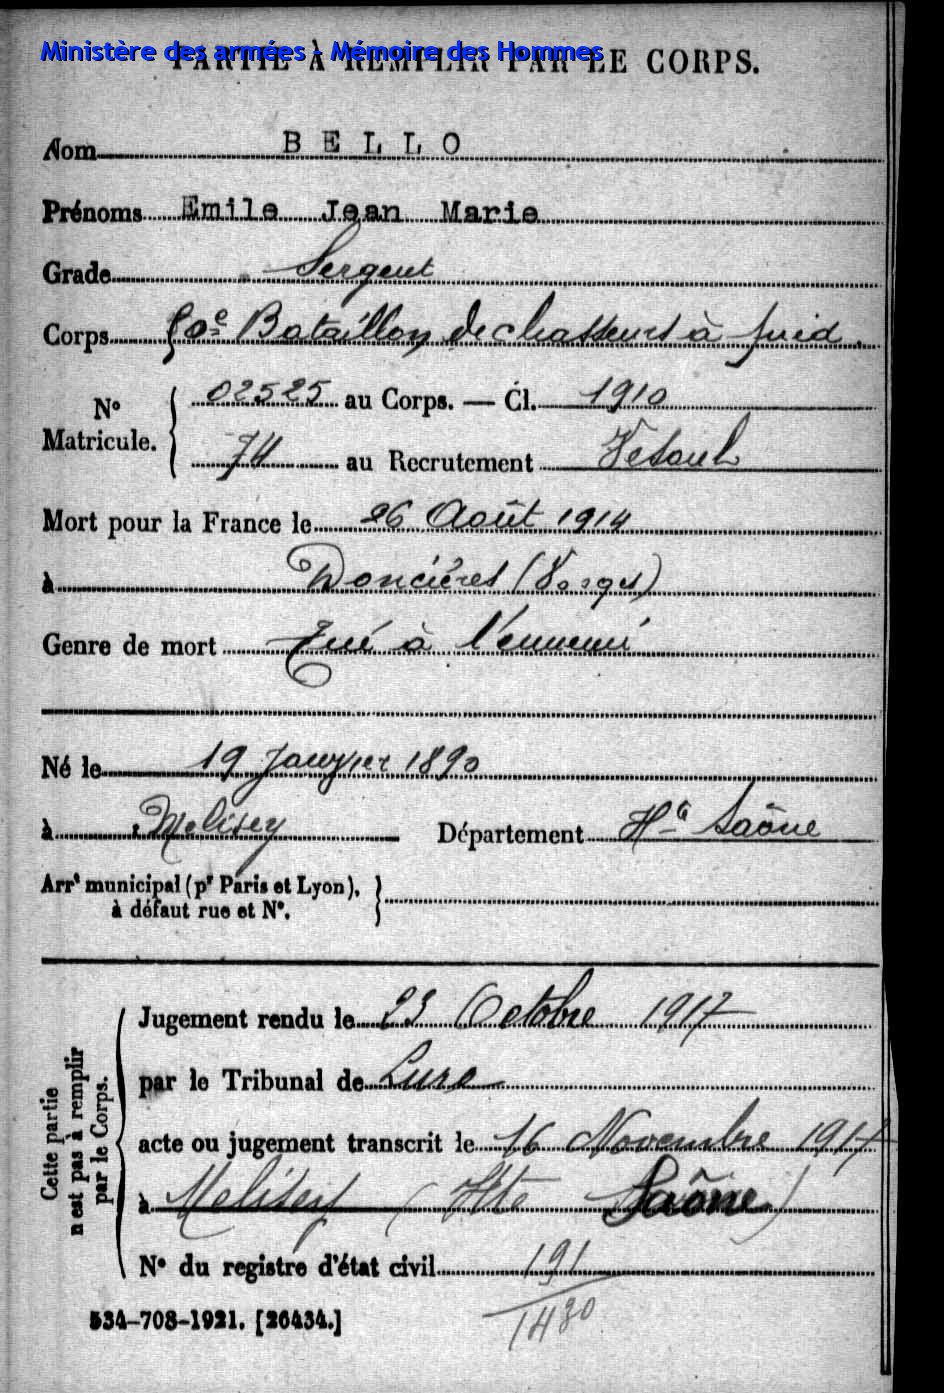 Ministère des armées - Mémoire des Hommes
PARTIE À REMPLIR PAR LE CORPS.
Nom BELLO
Prénoms Emile Jean Marie
Grade Sergent
Corps 50e Bataillon de chasseurs à pied.
N° Matricule. 02525 au Corps. — Cl. 1910
74 au Recrutement Vesoul
Mort pour la France le 26 Août 1914
à Doncières (Vosges)
Genre de mort Tué à l'ennemi
Né le 19 Janvier 1890
à Melisey Département Hte Saône
Arrt municipal (pr Paris et Lyon),
à défaut rue et N°.
Cette partie
n'est pas à remplir
par le Corps.
Jugement rendu le 23 Octobre 1917
par le Tribunal de Lure
acte ou jugement transcrit le 16 Novembre 1917
à Melisey (Hte Saône)
N° du registre d'état civil 191
1430
534-708-1921. [26434.]